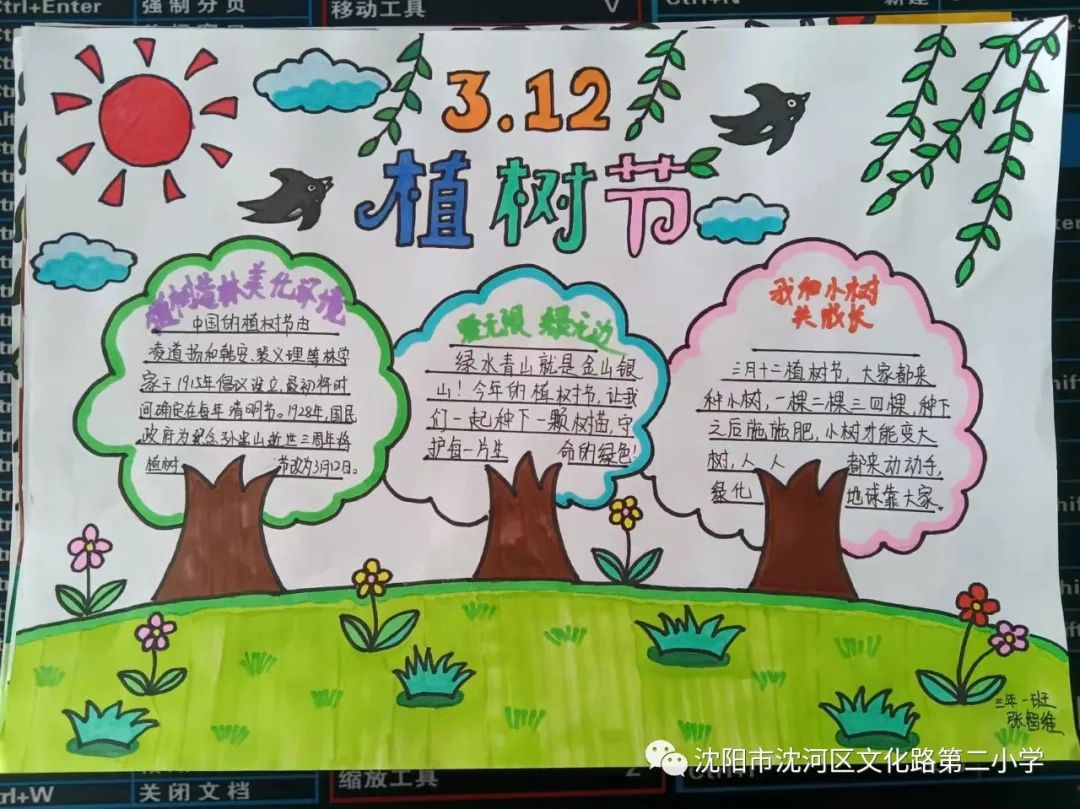 Ctrl+Enter
强制分页
移动工具
V
3.12
植树节
植树造林美化环境
中国的植树节由
凌道扬和韩安、裴义理等林学
家于1915年倡议设立,最初将时
间确定在每年清明节。1928年,国民
政府为纪念孙中山逝世三周年将
植树 节改为3月12日。
爱无限 绿无边
绿水青山就是金山银
山!今年的植树节,让我
们一起种下一颗树苗,守
护每一片生 命的绿色!
我和小树
共成长
三月十二植树节,大家都来
种小树,一棵二棵三四棵,种下
之后施施肥,小树才能变大
树,人人 都来动动手,
绿化 地球靠大家。
三年一班
张
沈阳市沈河区文化路第二小学
缩放工具
Z
关闭文档